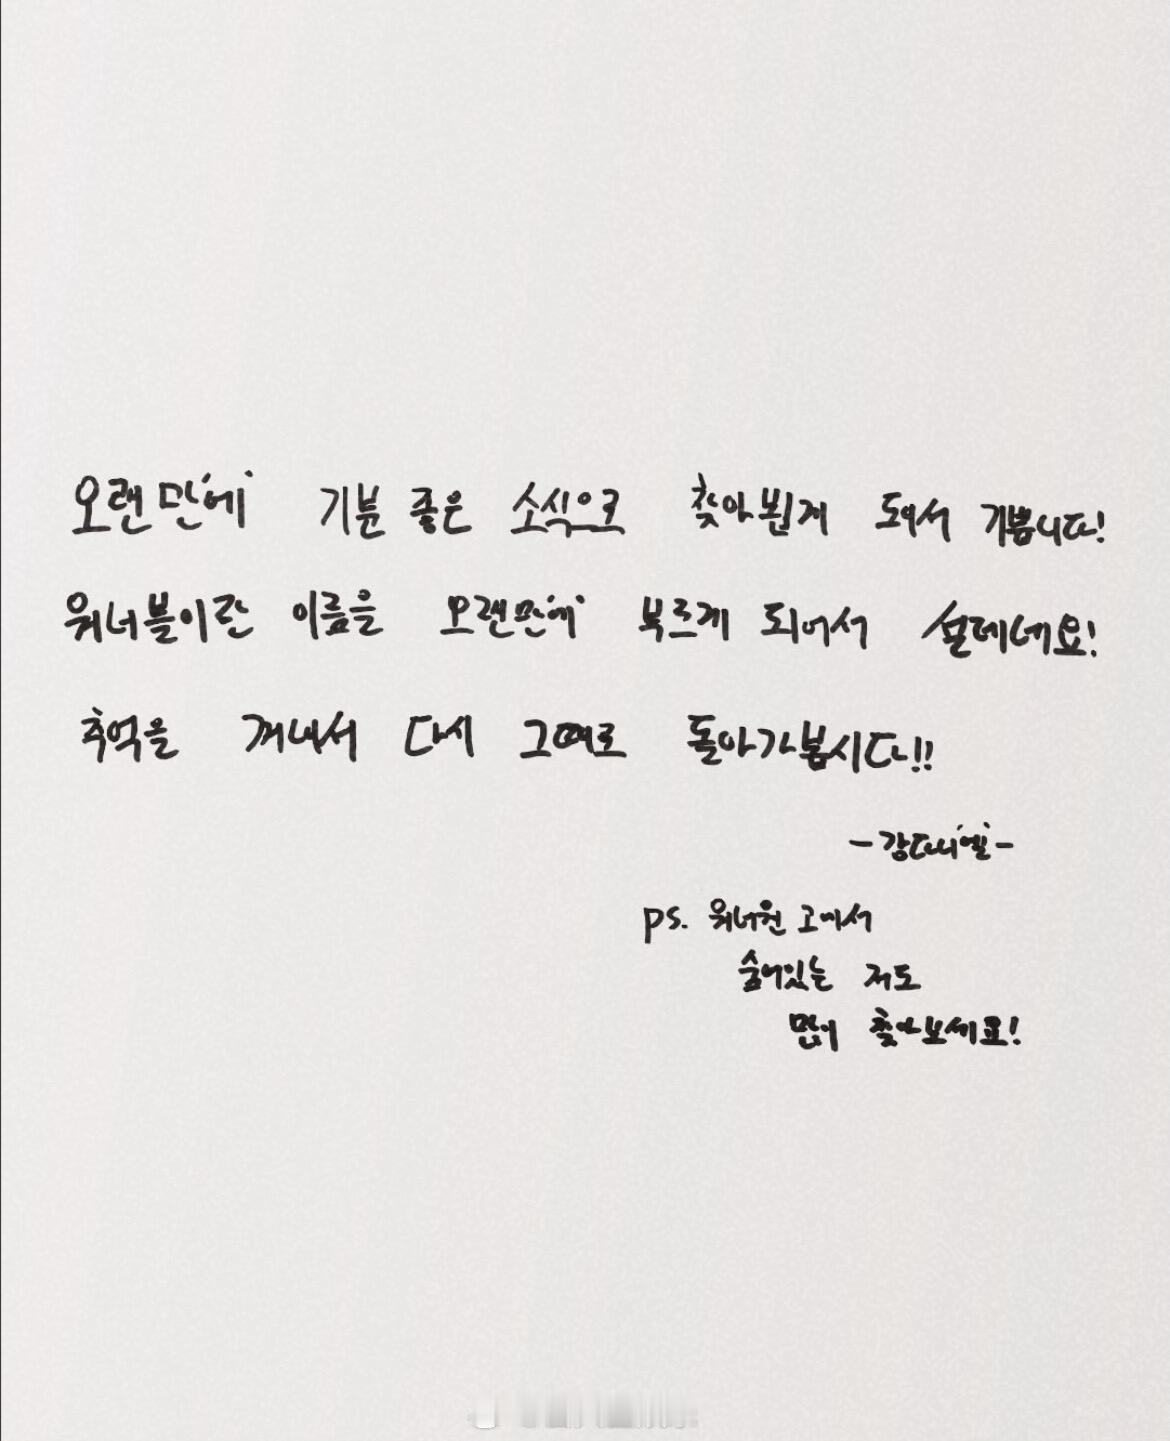 오랜만에 기분 좋은 소식으로 찾아뵙게 되서 기쁩니다!
워너블이란 이름을 오랜만에 부르게 되어서 설레네요!
추억을 꺼내서 다시 그때로 돌아가봅시다!!
-강다니엘-
ps. 워너원 고에서
숨어있는 저도
많이 찾아보세요!